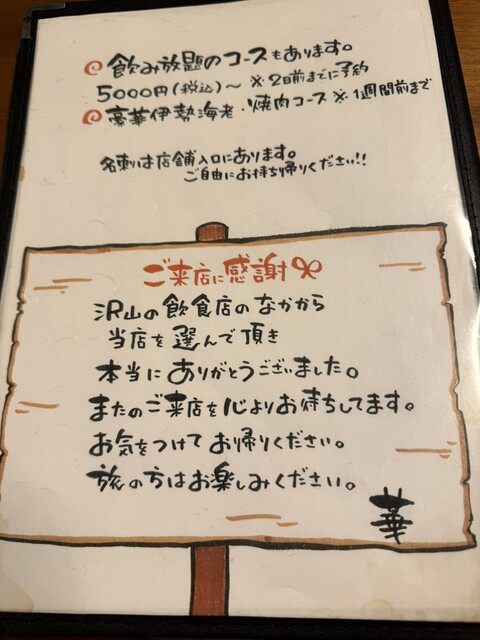 飲み放題のコースもあります。
5000円(税込)〜 ※2日前までに予約
豪華伊勢海老・焼肉コース ※1週間前まで
名刺は店舗入口にあります。
ご自由にお持ち帰りください!!
ご来店に感謝
沢山の飲食店のなかから
当店を選んで頂き
本当にありがとうございました。
またのご来店を心よりお待ちしてます。
お気をつけてお帰りください。
旅の方はお楽しみください。
華